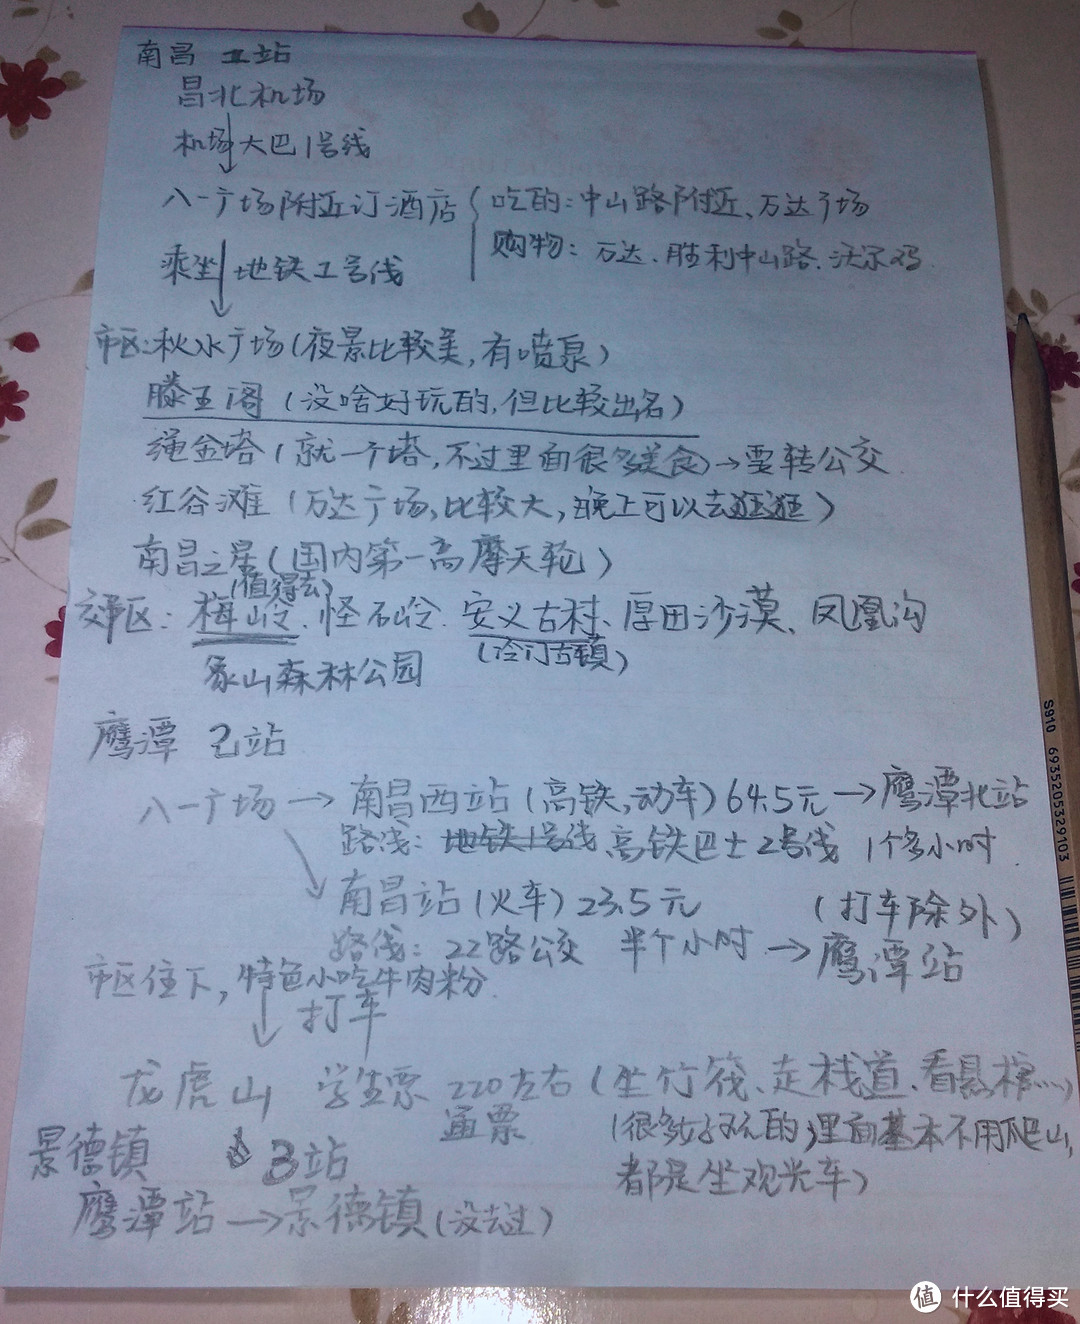 南昌 1站
昌北机场
机场大巴1号线
八一广场附近订酒店
吃的：中山路附近、万达广场
购物：万达、胜利中山路、沃尔玛
乘坐地铁1号线
市区：秋水广场（夜景比较美，有喷泉）
滕王阁（没啥好玩的，但比较出名）
绳金塔（就一个塔，不过里面很多美食）→要转公交
红谷滩（万达广场，比较大，晚上可以去逛逛）
南昌之星（国内第一高摩天轮）
（值得去）
郊区：梅岭、怪石岭、安义古村、厚田沙漠、凤凰沟
（冷门古镇）
象山森林公园
鹰潭 2站
八一广场→南昌西站（高铁，动车）64.5元→鹰潭北站
路线：地铁1号线、高铁巴士2号线 1个多小时
南昌站（火车）23.5元 （打车除外）
路线：22路公交 半个小时→鹰潭站
市区住下，特色小吃牛肉粉
打车
龙虎山 学生票 220左右（坐竹筏、走栈道、看悬棺……）
通票
（很多好玩的，里面基本不用爬山，
都是坐观光车）
景德镇 3站
鹰潭站→景德镇（没去过）
S910 6935205329103
值 什么值得买